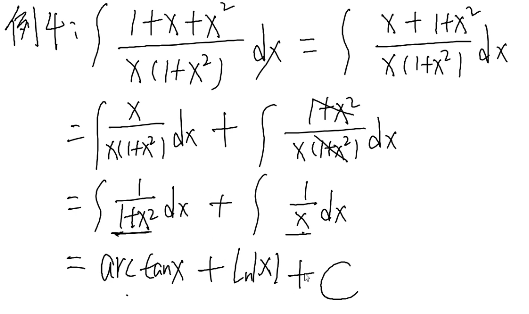 例4: ∫ (1+x+x²)/(x(1+x²)) dx = ∫ (x+1+x²)/(x(1+x²)) dx
= ∫ x/(x(1+x²)) dx + ∫ (1+x²)/(x(1+x²)) dx
= ∫ 1/(1+x²) dx + ∫ 1/x dx
= arctanx + ln|x| + C